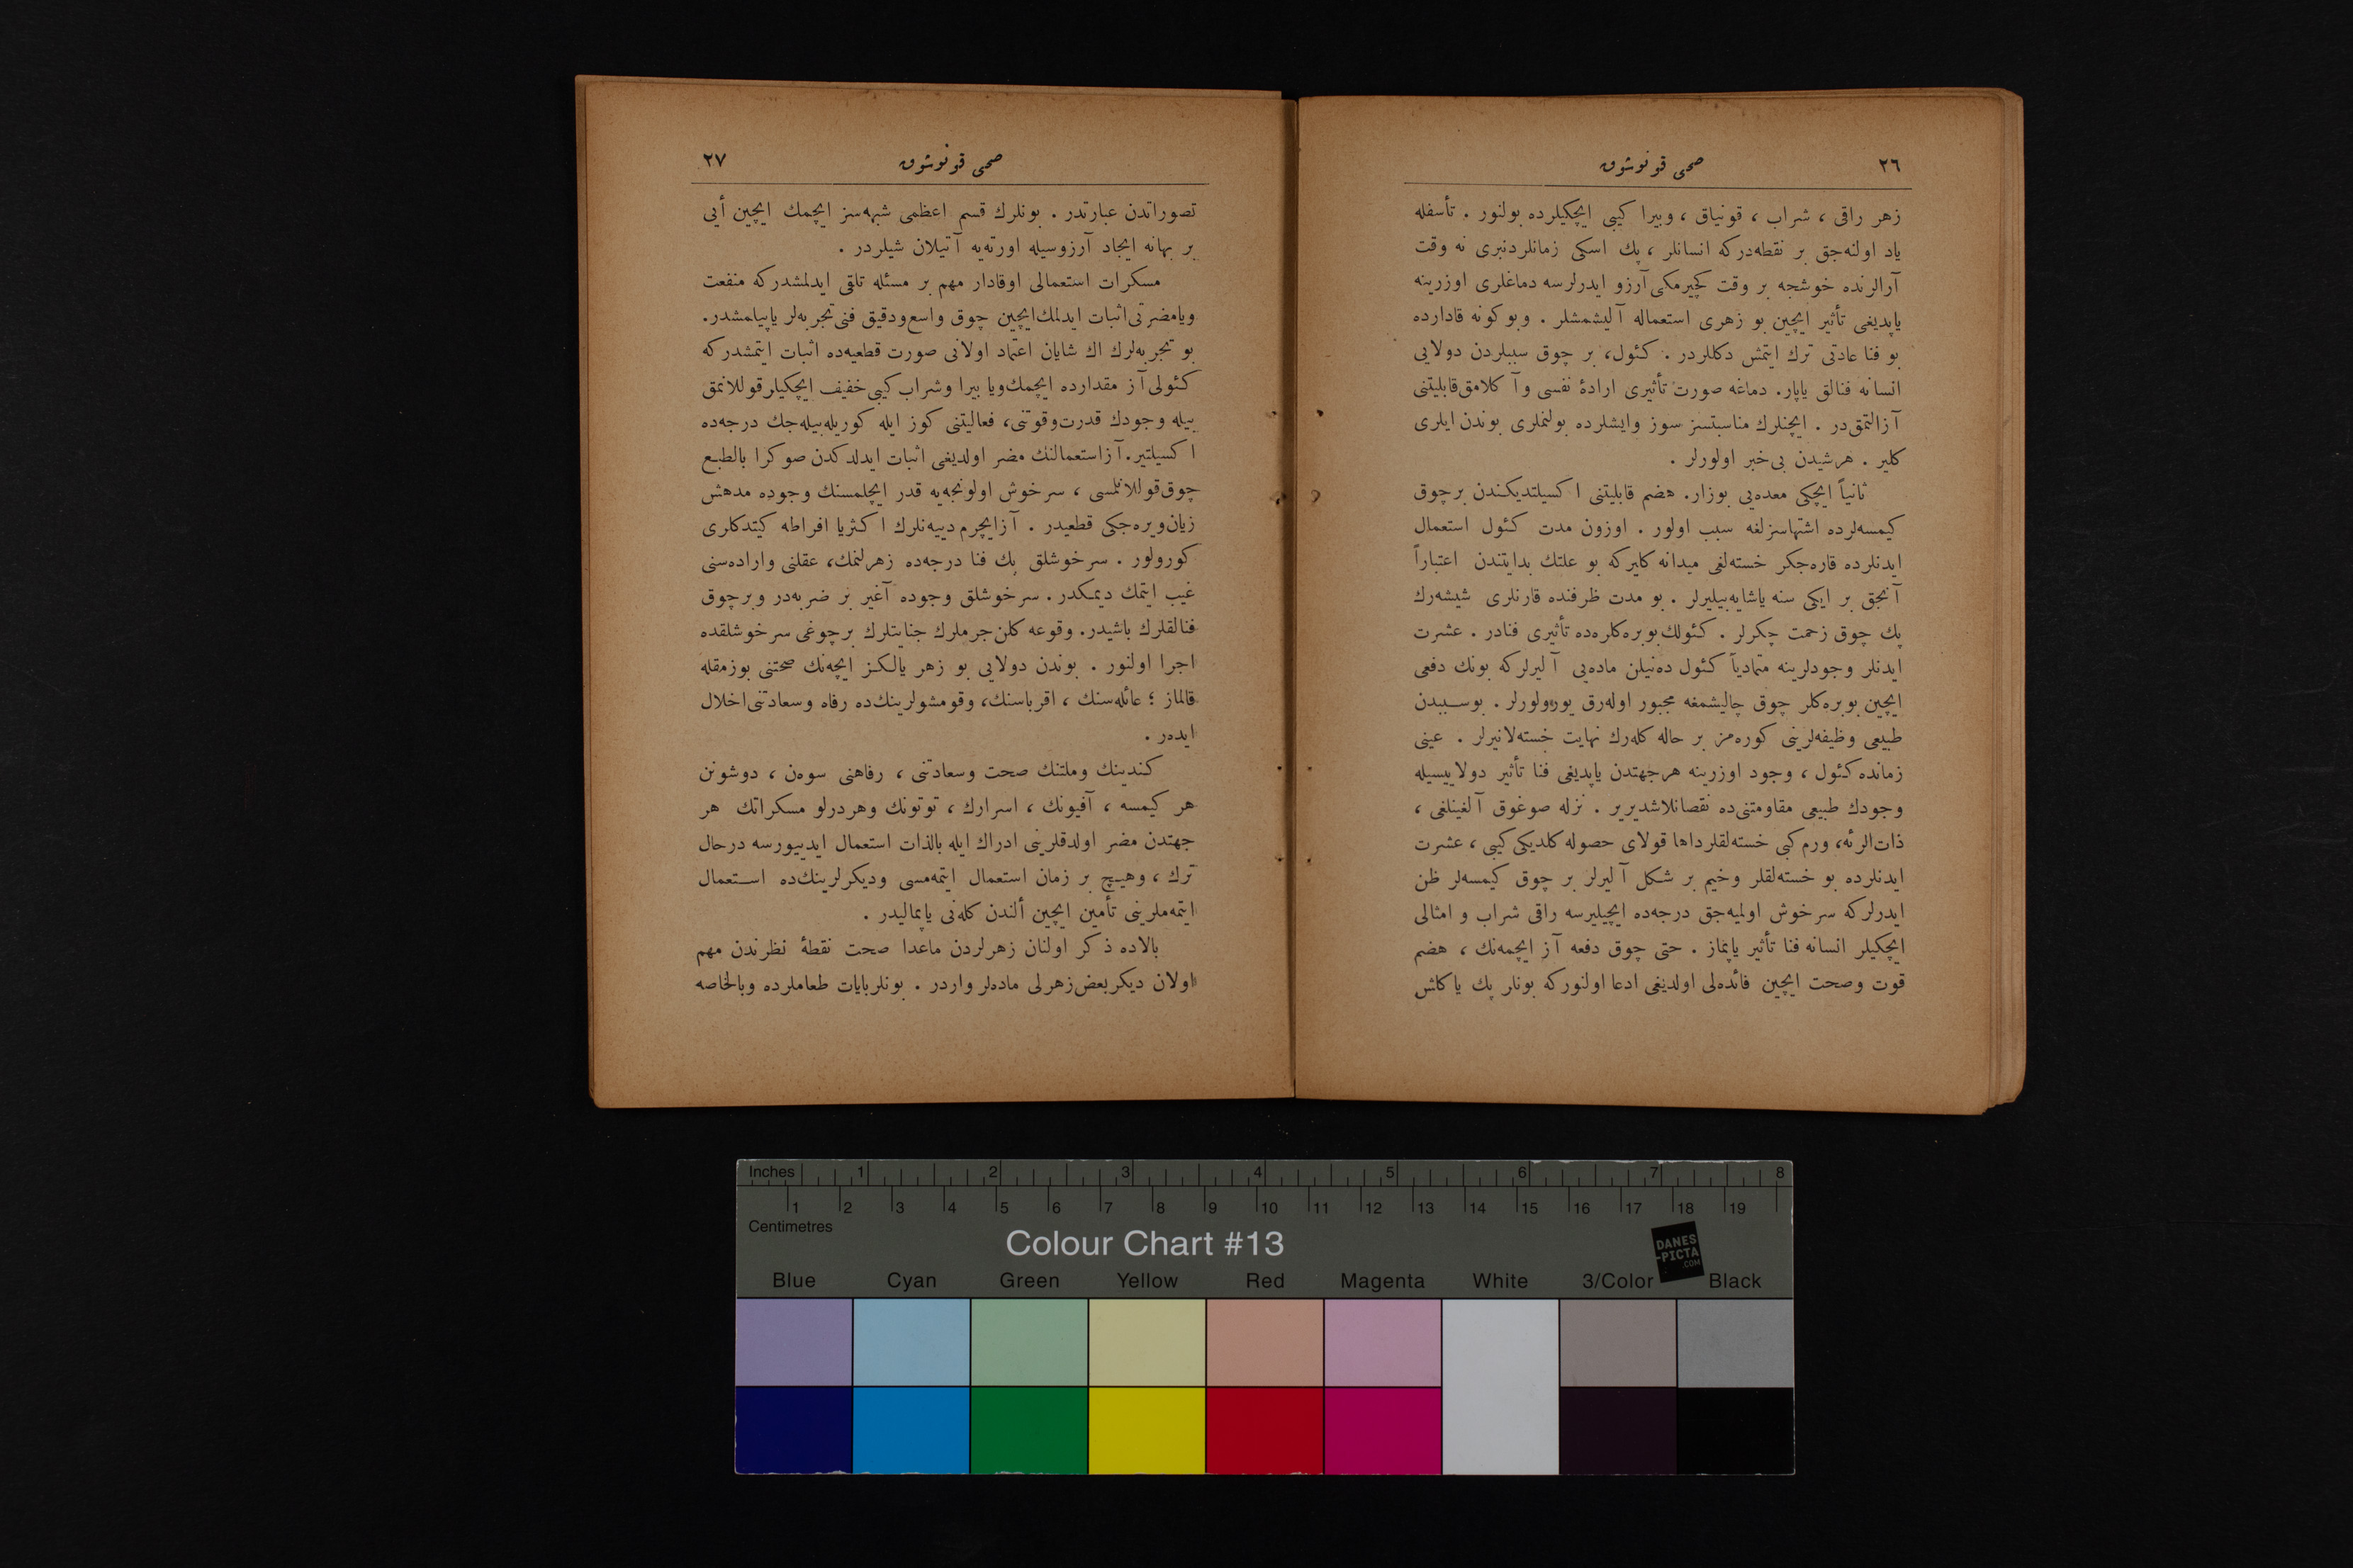 ٢٦
صحی قونوشوق
زهر راقی ، شراب ، قونیاق ، وبیرا کیبی ایچکیلرده بولنور . تأسفله
یاد اولنه‌جق بر نقطه‌درکه انسانلر ، پك اسکی زمانلردنبری نه وقت
آرالرنده خوشجه بر وقت کچیرمکی آرزو ایدرلرسه دماغلری اوزرینه
یاپدیغی تأثیر ایچین بو زهری استعماله آلیشمشلر . وبو کونه قادارده
بو فنا عادتی ترك ایتمش دکللردر . کئول، بر چوق سببلردن دولایی
انسانه فنالق یاپار. دماغه صورت تأثیری ارادهٔ نفسی وآ کلامق قابلیتنی
آزالتمق‌در . ایچنلرك مناسبتسز سوز وایشلرده بولنملری بوندن ایلری
کلیر . هرشیدن بی‌خبر اولورلر .
ثانیاً ایچکی معده‌یی بوزار. هضم قابلیتنی ا کسیلتدیکندن برچوق
کیمسه‌لرده اشتهاسزلغه سبب اولور . اوزون مدت کئول استعمال
ایدنلرده قاره‌جکر خسته‌لغی میدانه کلیرکه بو علتك بدایتندن اعتباراً
آنجق بر ایکی سنه یاشایه‌بیلیرلر . بو مدت ظرفنده قارنلری شیشه‌رك
پك چوق زحمت چکرلر . کئولك بوبره‌کلره‌ده تأثیری فنادر . عشرت
ایدنلر وجودلرینه متمادیاً کئول ده‌نیلن ماده‌یی آلیرلرکه بونك دفعی
ایچین بوبره‌کلر چوق چالیشمغه مجبور اوله‌رق یورولورلر . بوسببدن
طبیعی وظیفه‌لرینی کوره‌مز بر حاله کله‌رك نهایت خسته‌لانیرلر . عینی
زمانده کئول ، وجود اوزرینه هرجهتدن یاپدیغی فنا تأثیر دولاییسیله
وجودك طبیعی مقاومتنی‌ده نقصانلاشدیریر . نزله صوغوق آلغینلغی ،
ذات‌الرئه، ورم کبی خسته‌لقلرداها قولای حصوله کلدیکی کیبی ، عشرت
ایدنلرده بو خسته‌لقلر وخیم بر شکل آلیرلر بر چوق کیمسه‌لر ظن
ایدرلرکه سرخوش اولمیه‌جق درجه‌ده ایچیلیرسه راقی شراب و امثالی
ایچکیلر انسانه فنا تأثیر یاپماز . حتی چوق دفعه آز ایچمه‌نك ، هضم
قوت وصحت ایچین فائده‌لی اولدیغی ادعا اولنورکه بونلر پك یا کلش
٢٧
صحی قونوشوق
تصوراتدن عبارتدر . بونلرك قسم اعظمی شبهه‌سز ایچمك ایچین أیی
بر بهانه ایجاد آرزوسیله اورته‌یه آتیلان شیلردر .
مسکرات استعمالی اوقادار مهم بر مسئله تلقی ایدلمشدرکه منفعت
ویامضرتی اثبات ایدلمك ایچین چوق واسع ودقیق فنی تجربه‌لر یاپیلمشدر.
بو تجربه‌لرك اك شایان اعتماد اولانی صورت قطعیه‌ده اثبات ایتمشدرکه
کئولی آز مقدارده ایچمك ویا بیرا وشراب کیبی خفیف ایچکیلر قوللانمق
بیله وجودك قدرت وقوتنی، فعالیتنی کوز ایله کوریله‌بیله‌جك درجه‌ده
ا کسیلتیر. آزاستعمالنك مضر اولدیغی اثبات ایدلدکدن صوکرا بالطبع
چوق قوللانلمسی ، سرخوش اولونجه‌یه قدر ایچلمسنك وجوده مدهش
زیان ویره‌جکی قطعیدر . آز ایچرم دییه‌نلرك ا کثریا افراطه کیتدکلری
کورولور . سرخوشلق پك فنا درجه‌ده زهرلنمك، عقلنی واراده‌سنی
غیب ایتمك دیمکدر. سرخوشلق وجوده آغیر بر ضربه‌در وبرچوق
فنالقلرك باشیدر. وقوعه کلن جرملرك جنایتلرك برچوغی سرخوشلقده
اجرا اولنور . بوندن دولایی بو زهر یالکز ایچه‌نك صحتنی بوزمقله
قالماز ؛ عائله‌سنك ، اقرباسنك، وقومشولرینك‌ده رفاه وسعادتنی اخلال
ایده‌ر .
کندینك وملتنك صحت وسعادتنی ، رفاهنی سوه‌ن ، دوشونن
هر کیمسه ، آفیونك ، اسرارك ، توتونك وهردرلو مسکراتك هر
جهتدن مضر اولدقلرینی ادراك ایله بالذات استعمال ایدییورسه درحال
ترك ، وهیچ بر زمان استعمال ایتمه‌مسی ودیکرلرینك‌ده استعمال
ایتمه‌ملرینی تأمین ایچین ألندن کله‌نی یاپمالیدر .
بالاده ذکر اولنان زهرلردن ماعدا صحت نقطهٔ نظرندن مهم
اولان دیکر بعض زهرلی ماده‌لر واردر . بونلر بایات طعاملرده وبالخاصه
Inches 1 2 3 4 5 6 7 8
1 2 3 4 5 6 7 8 9 10 11 12 13 14 15 16 17 18 19
Centimetres
Colour Chart #13
DANES
-PICTA
.COM
Blue Cyan Green Yellow Red Magenta White 3/Color Black